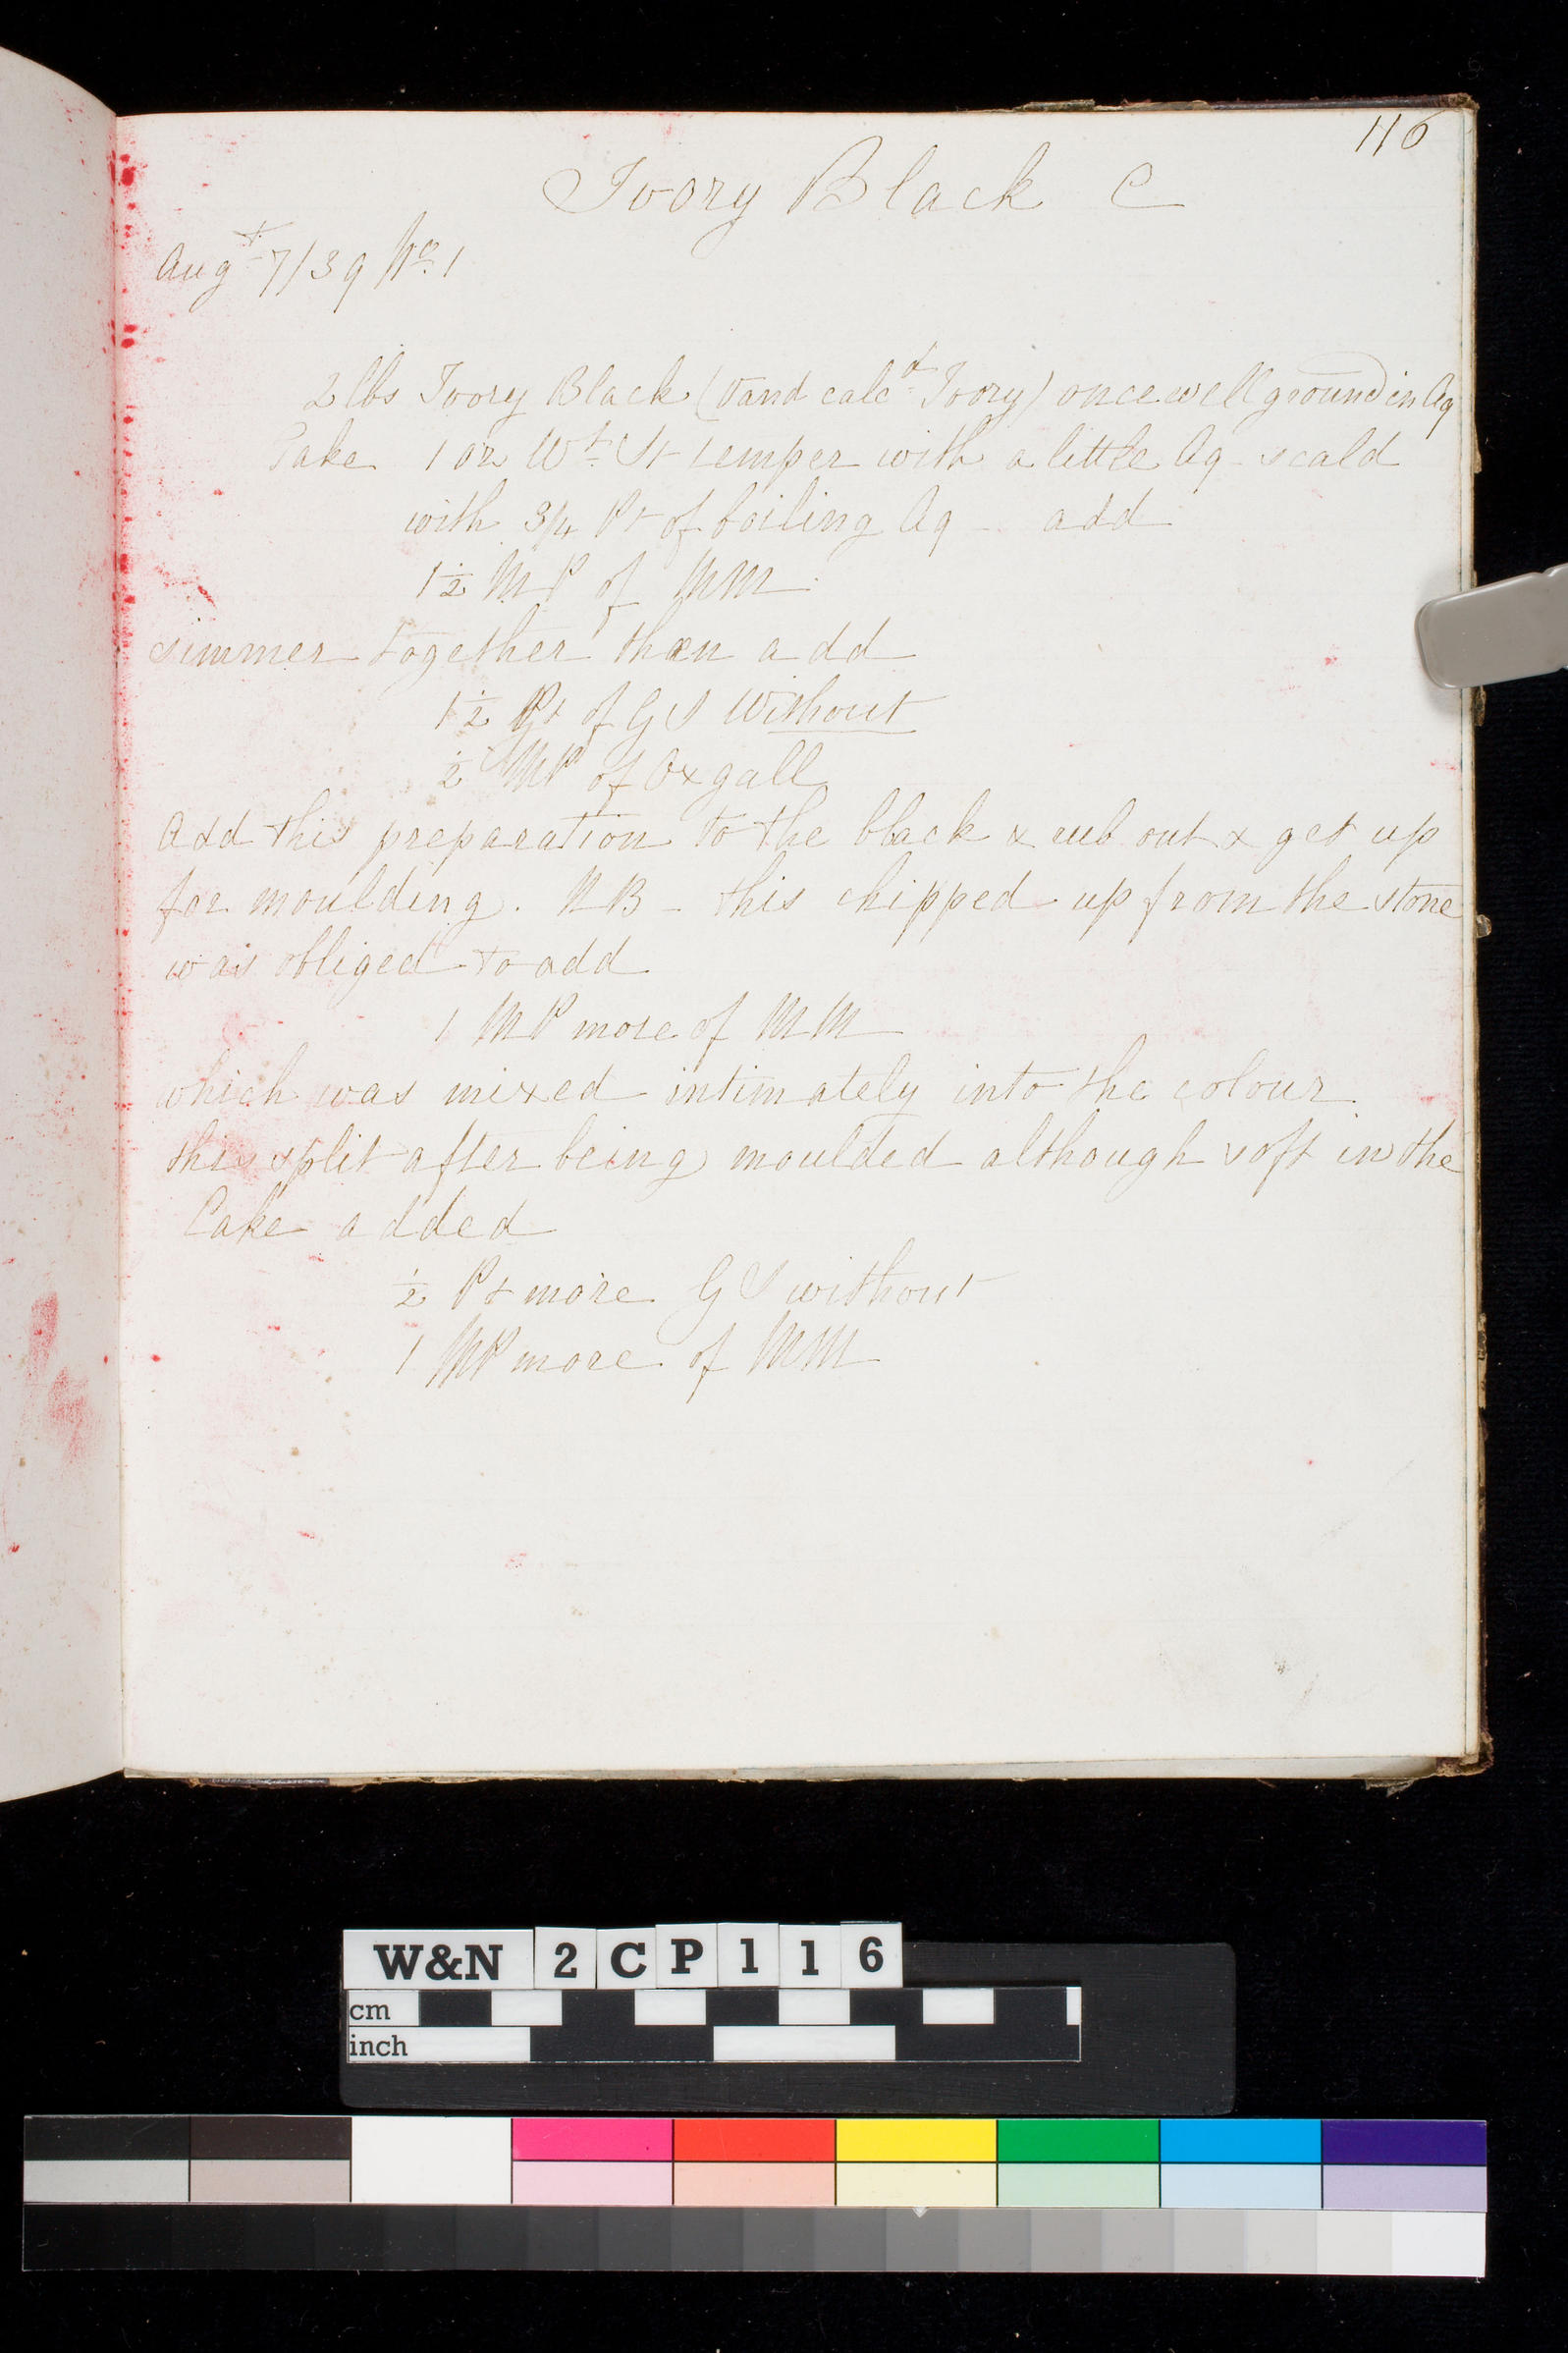 116
Ivory Black C
Augt 7/39 No. 1
2 lbs Ivory Black (Vand calcd Ivory) once well ground in Aq
Take 1 oz Wt St temper with a little Aq - scald
with 3/4 Pt of boiling Aq - add
1 1/2 MP of MM
simmer together then add
1 1/2 Pt of GS without
1/2 MP of Oxgall
Add this preparation to the black & rub out & get up
for moulding. NB - this chipped up from the stone
was obliged to add
1 MP more of MM
which was mixed intimately into the colour
this split after being moulded although soft in the
Cake added
1/2 Pt more GS without
1 MP more of MM
W&N 2CP116
cm
inch